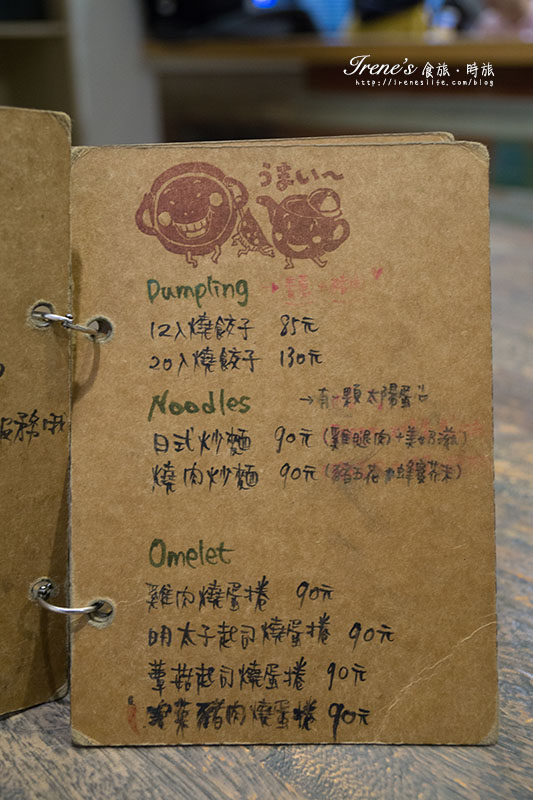 Irene's 食旅・時旅
http://irenesilife.com/blog
うまい〜
Dumpling
12入燒餃子 85元
20入燒餃子 130元
Noodles →有一顆太陽蛋
日式炒麵 90元(雞腿肉+美乃滋)
燒肉炒麵 90元(豬五花+蜂蜜芥末)
Omelet
雞肉燒蛋捲 90元
明太子起司燒蛋捲 90元
蕈菇起司燒蛋捲 90元
豬肉燒蛋捲 90元